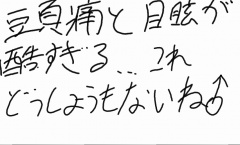 頭痛と目眩が
酷すぎる… これ
どうしようもないね♂